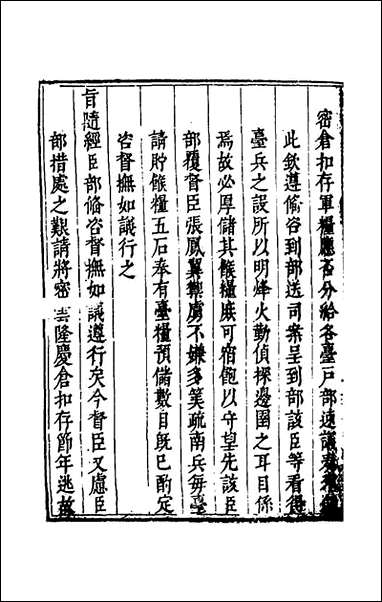 密倉扣存軍糧應否分給各臺戶部速議
此欽遵備咨到部送司案呈到部該臣等看得
臺兵之設所以明烽火勤偵探邊圉之耳目係
焉故必厚儲其餱糧庶可宿飽以守望先該臣
部覆督臣張鳳翼禦虜不嫌多筭疏南兵每臺
請貯餱糧五石奉有臺糧預儲數目既已酌定
咨督撫如議行之
旨隨經臣部備咨督撫如議遵行矣今督臣又慮臣
部措處之艱請將密雲隆慶倉扣存節年逃故